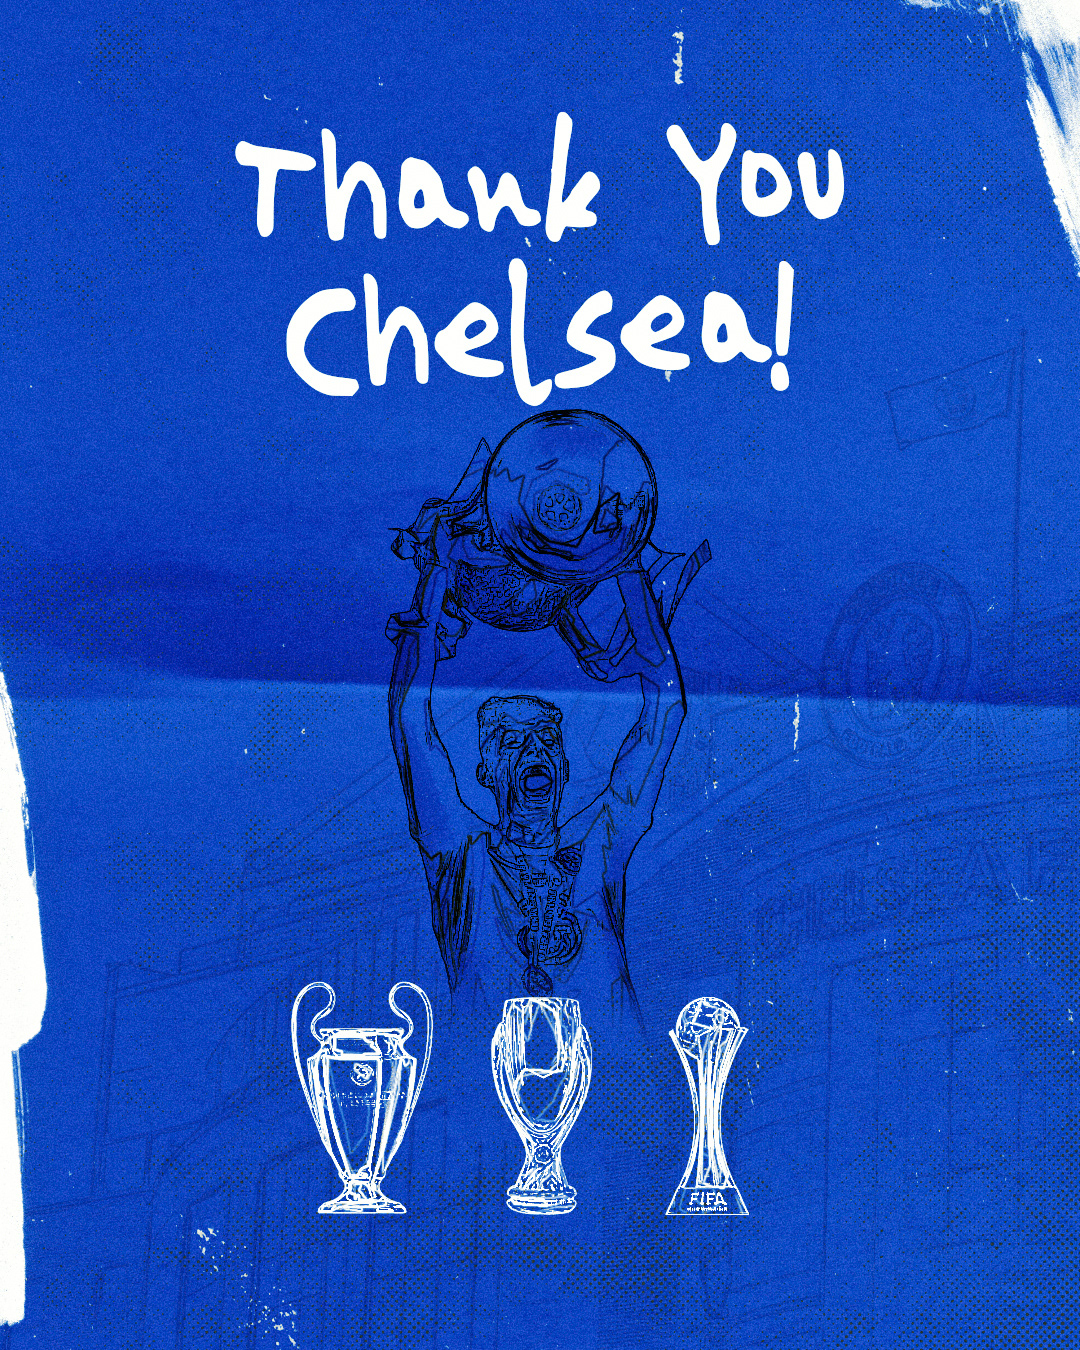 Thank You
Chelsea!
FIFA